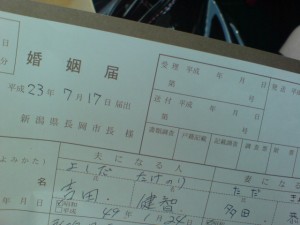 日
分
婚姻届
受理 平成 年 月 日
発送 平成
第 号
平成 23年 7月 17日 届出
送付 平成 年 月 日
第 号
新潟県長岡市長 様
書類調査 戸籍記載 記載調査 調査票
夫になる人
妻になる
よみかた
よしだ
ただ
名
吉田
多田
昭和
平成
49年 1月 24日